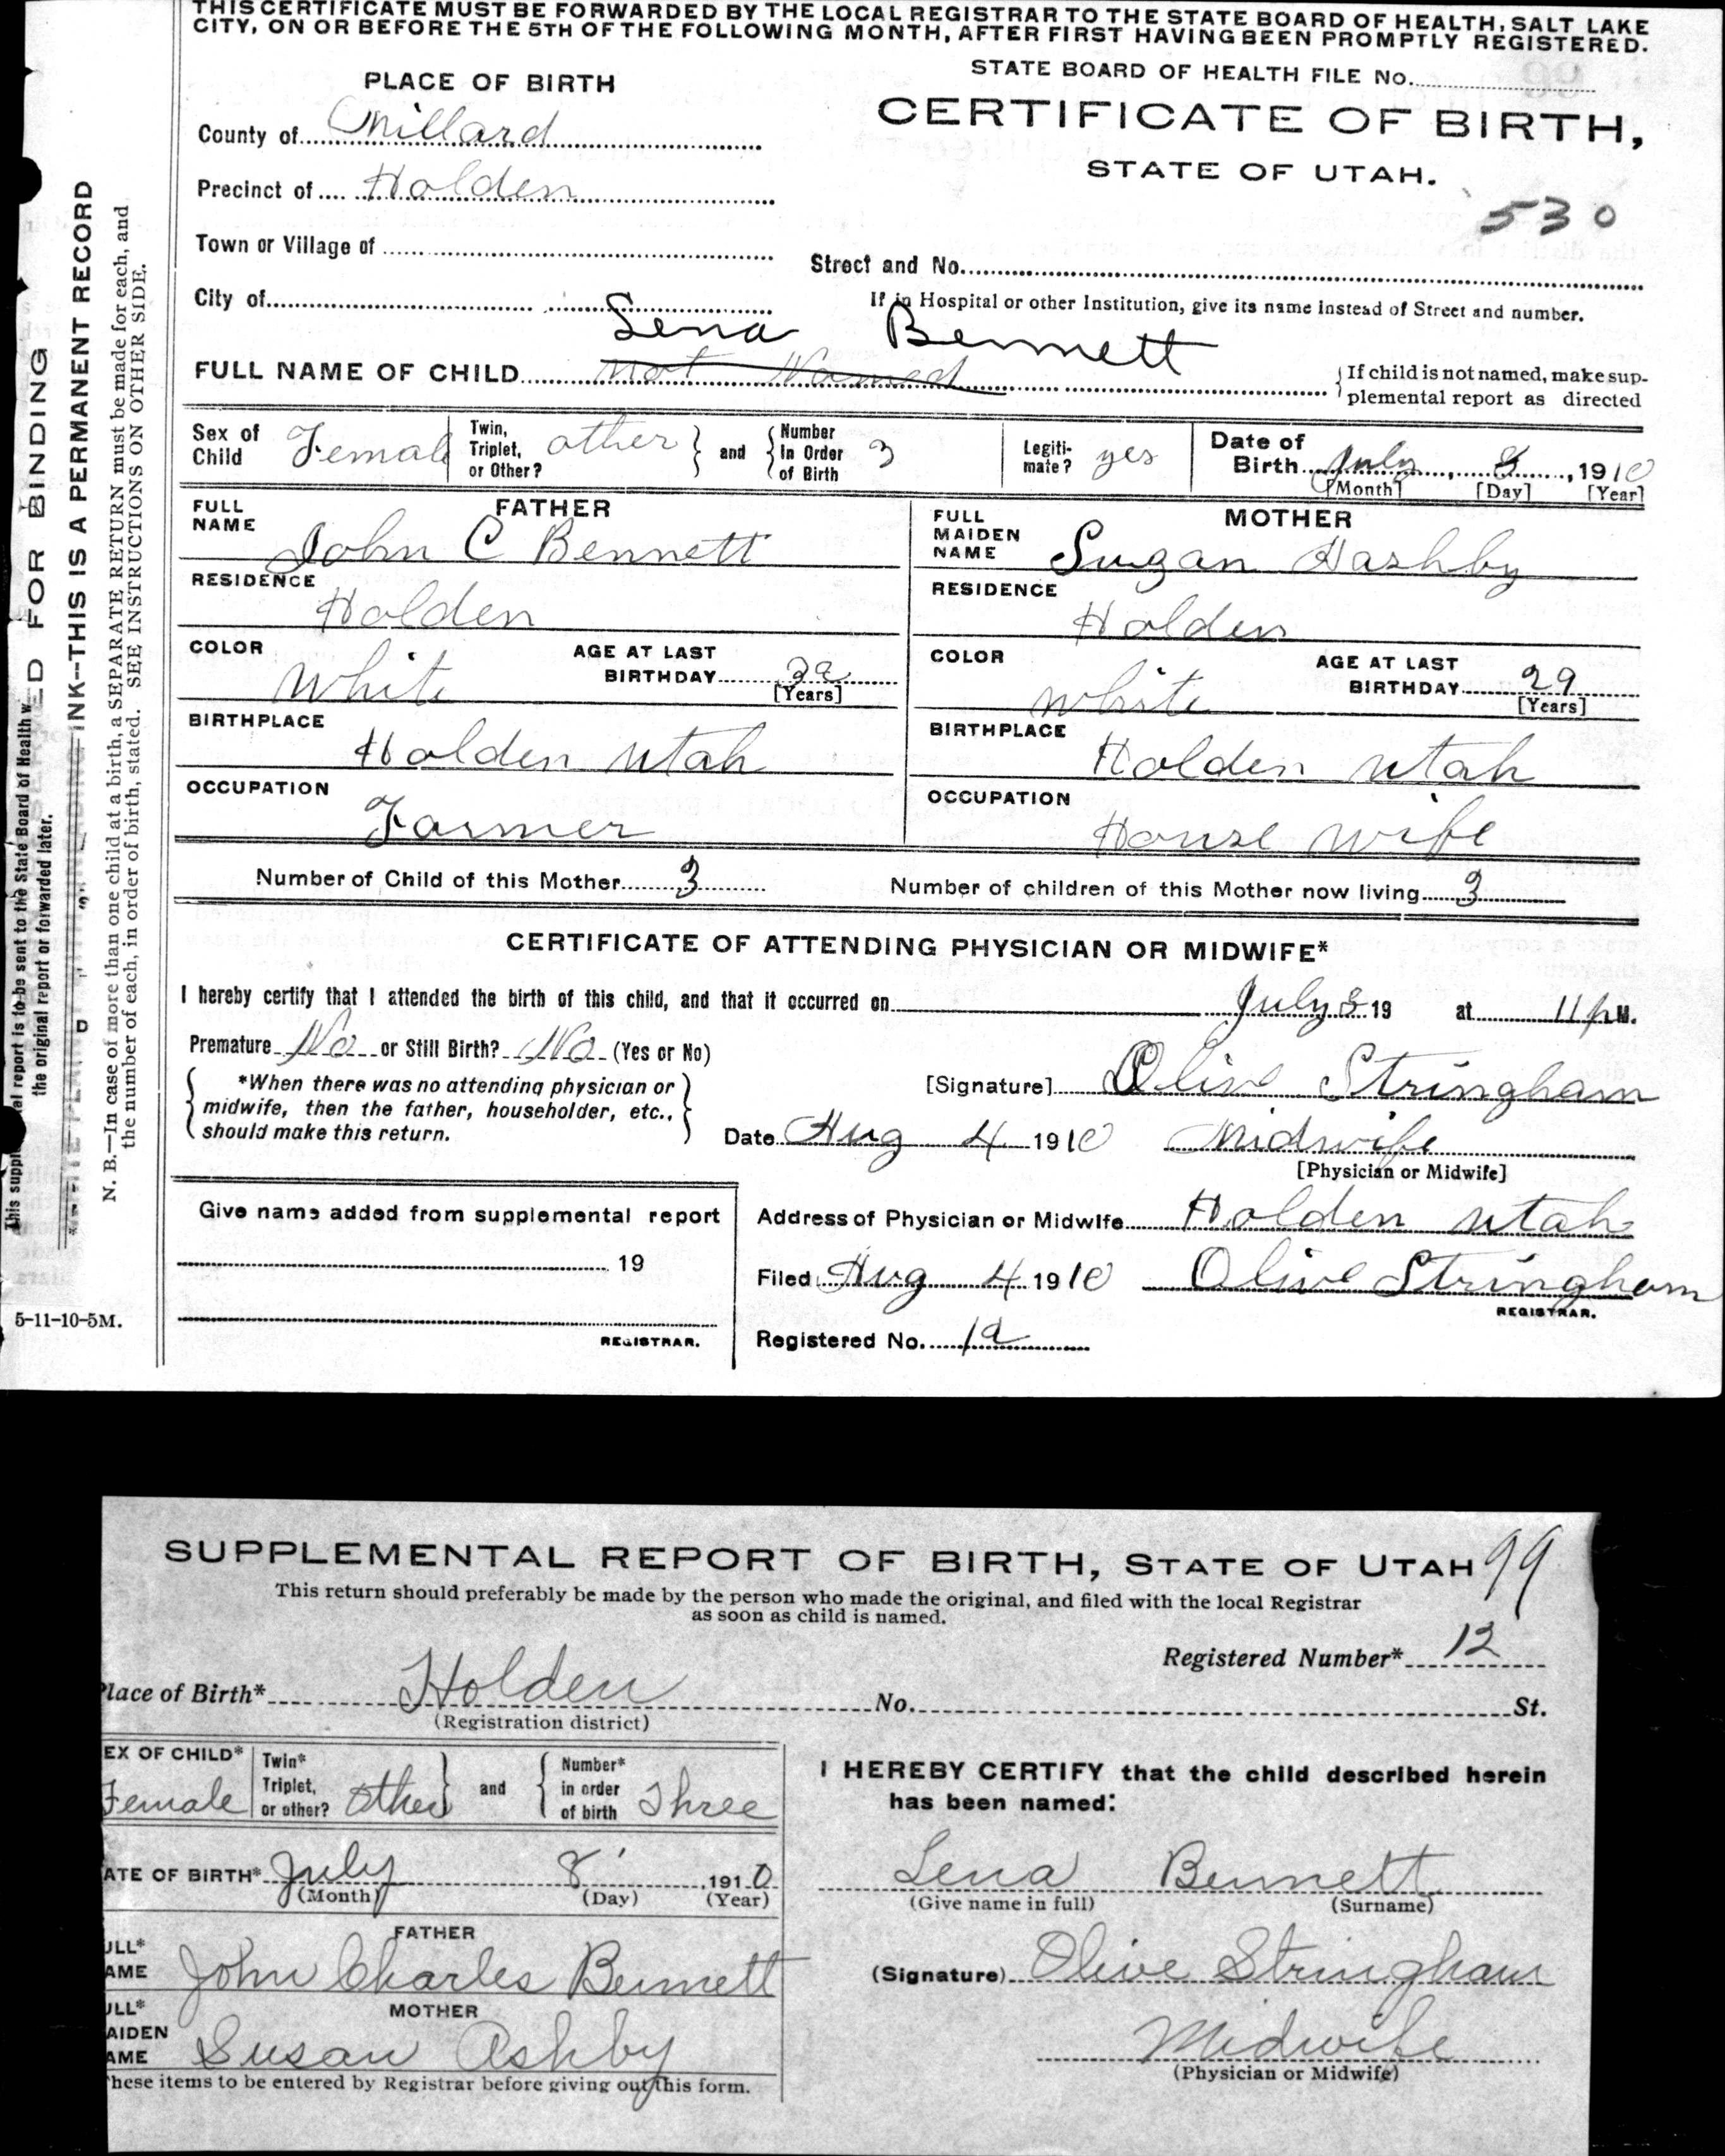 THIS CERTIFICATE MUST BE FORWARDED BY THE LOCAL REGISTRAR TO THE STATE BOARD OF HEALTH, SALT LAKE
CITY, ON OR BEFORE THE 5TH OF THE FOLLOWING MONTH, AFTER FIRST HAVING BEEN PROMPTLY REGISTERED.
STATE BOARD OF HEALTH FILE No.
PLACE OF BIRTH
CERTIFICATE OF BIRTH,
STATE OF UTAH.
County of Millard
Precinct of Holden
530
Town or Village of
Street and No.
City of
If in Hospital or other Institution, give its name instead of Street and number.
Lena Bennett
FULL NAME OF CHILD not Named
If child is not named, make sup-
plemental report as directed
Sex of Child Female
Twin, Triplet, or Other? other and Number in Order of Birth 3
Legiti-mate? yes
Date of Birth July 8, 1910
[Month] [Day] [Year]
FATHER
FULL NAME John C Bennett
RESIDENCE
Holden
COLOR White
AGE AT LAST BIRTHDAY 32 [Years]
BIRTHPLACE
Holden Utah
OCCUPATION
Farmer
MOTHER
FULL MAIDEN NAME Suzan Hashby
RESIDENCE
Holden
COLOR white
AGE AT LAST BIRTHDAY 29 [Years]
BIRTHPLACE
Holden Utah
OCCUPATION
House wife
Number of Child of this Mother 3
Number of children of this Mother now living 3
CERTIFICATE OF ATTENDING PHYSICIAN OR MIDWIFE*
I hereby certify that I attended the birth of this child, and that it occurred on July 8 19 at 11 p M.
Premature No or Still Birth? No (Yes or No)
*When there was no attending physician or
midwife, then the father, householder, etc.,
should make this return.
[Signature] Olive Stringham
Date Aug 4 1910 Midwife
[Physician or Midwife]
Give name added from supplemental report
19
REGISTRAR.
Address of Physician or Midwife Holden Utah
Filed Aug 4 1910 Olive Stringham
REGISTRAR.
Registered No. 12
ED FOR BINDING
INK--THIS IS A PERMANENT RECORD
N. B.—In case of more than one child at a birth, a SEPARATE RETURN must be made for each, and
the number of each, in order of birth, stated. SEE INSTRUCTIONS ON OTHER SIDE.
report is to be sent to the State Board of Health w
the original report or forwarded later.
5-11-10-5M.
SUPPLEMENTAL REPORT OF BIRTH, STATE OF UTAH 99
This return should preferably be made by the person who made the original, and filed with the local Registrar
as soon as child is named.
Registered Number* 12
Place of Birth* Holden No. St.
(Registration district)
EX OF CHILD* Female
Twin* Triplet, or other? Other and Number* in order of birth Three
ATE OF BIRTH* July 8 1910
(Month) (Day) (Year)
FATHER
ULL* AME John Charles Bennett
MOTHER
ULL* AIDEN AME Susan Ashby
hese items to be entered by Registrar before giving out this form.
I HEREBY CERTIFY that the child described herein
has been named:
Lena Bennett
(Give name in full) (Surname)
(Signature) Olive Stringham
Midwife
(Physician or Midwife)